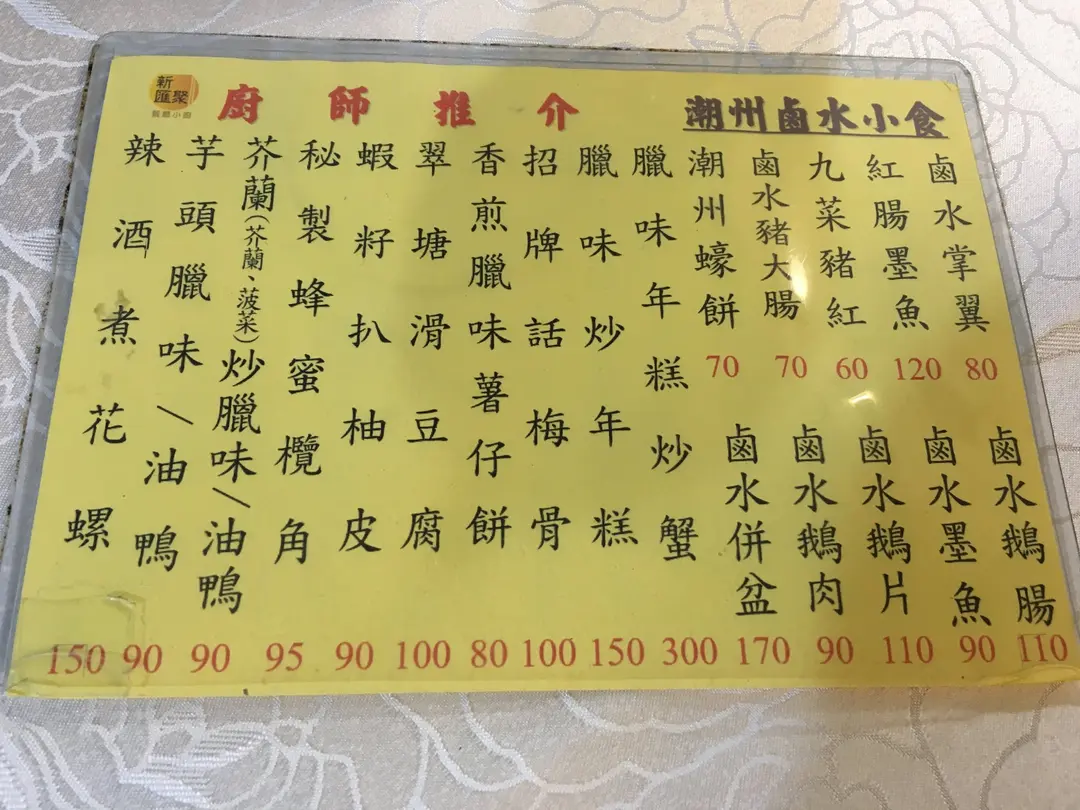 新
匯聚
廚師推介
辣酒煮花螺
150
芋頭臘味\油鴨
90
芥蘭(芥蘭、菠菜)炒臘味\油鴨
90
秘製蜂蜜欖角
95
蝦籽扒柚皮
90
翠塘滑豆腐
100
香煎臘味薯仔餅
80
招牌話梅骨
100
臘味炒年糕
150
臘味年糕炒蟹
300
潮州鹵水小食
潮州蠔餅
70
鹵水豬大腸
70
九菜豬紅
60
紅腸墨魚
120
鹵水掌翼
80
鹵水併盆
170
鹵水鵝肉
90
鹵水鵝片
110
鹵水墨魚
90
鹵水鵝腸
110